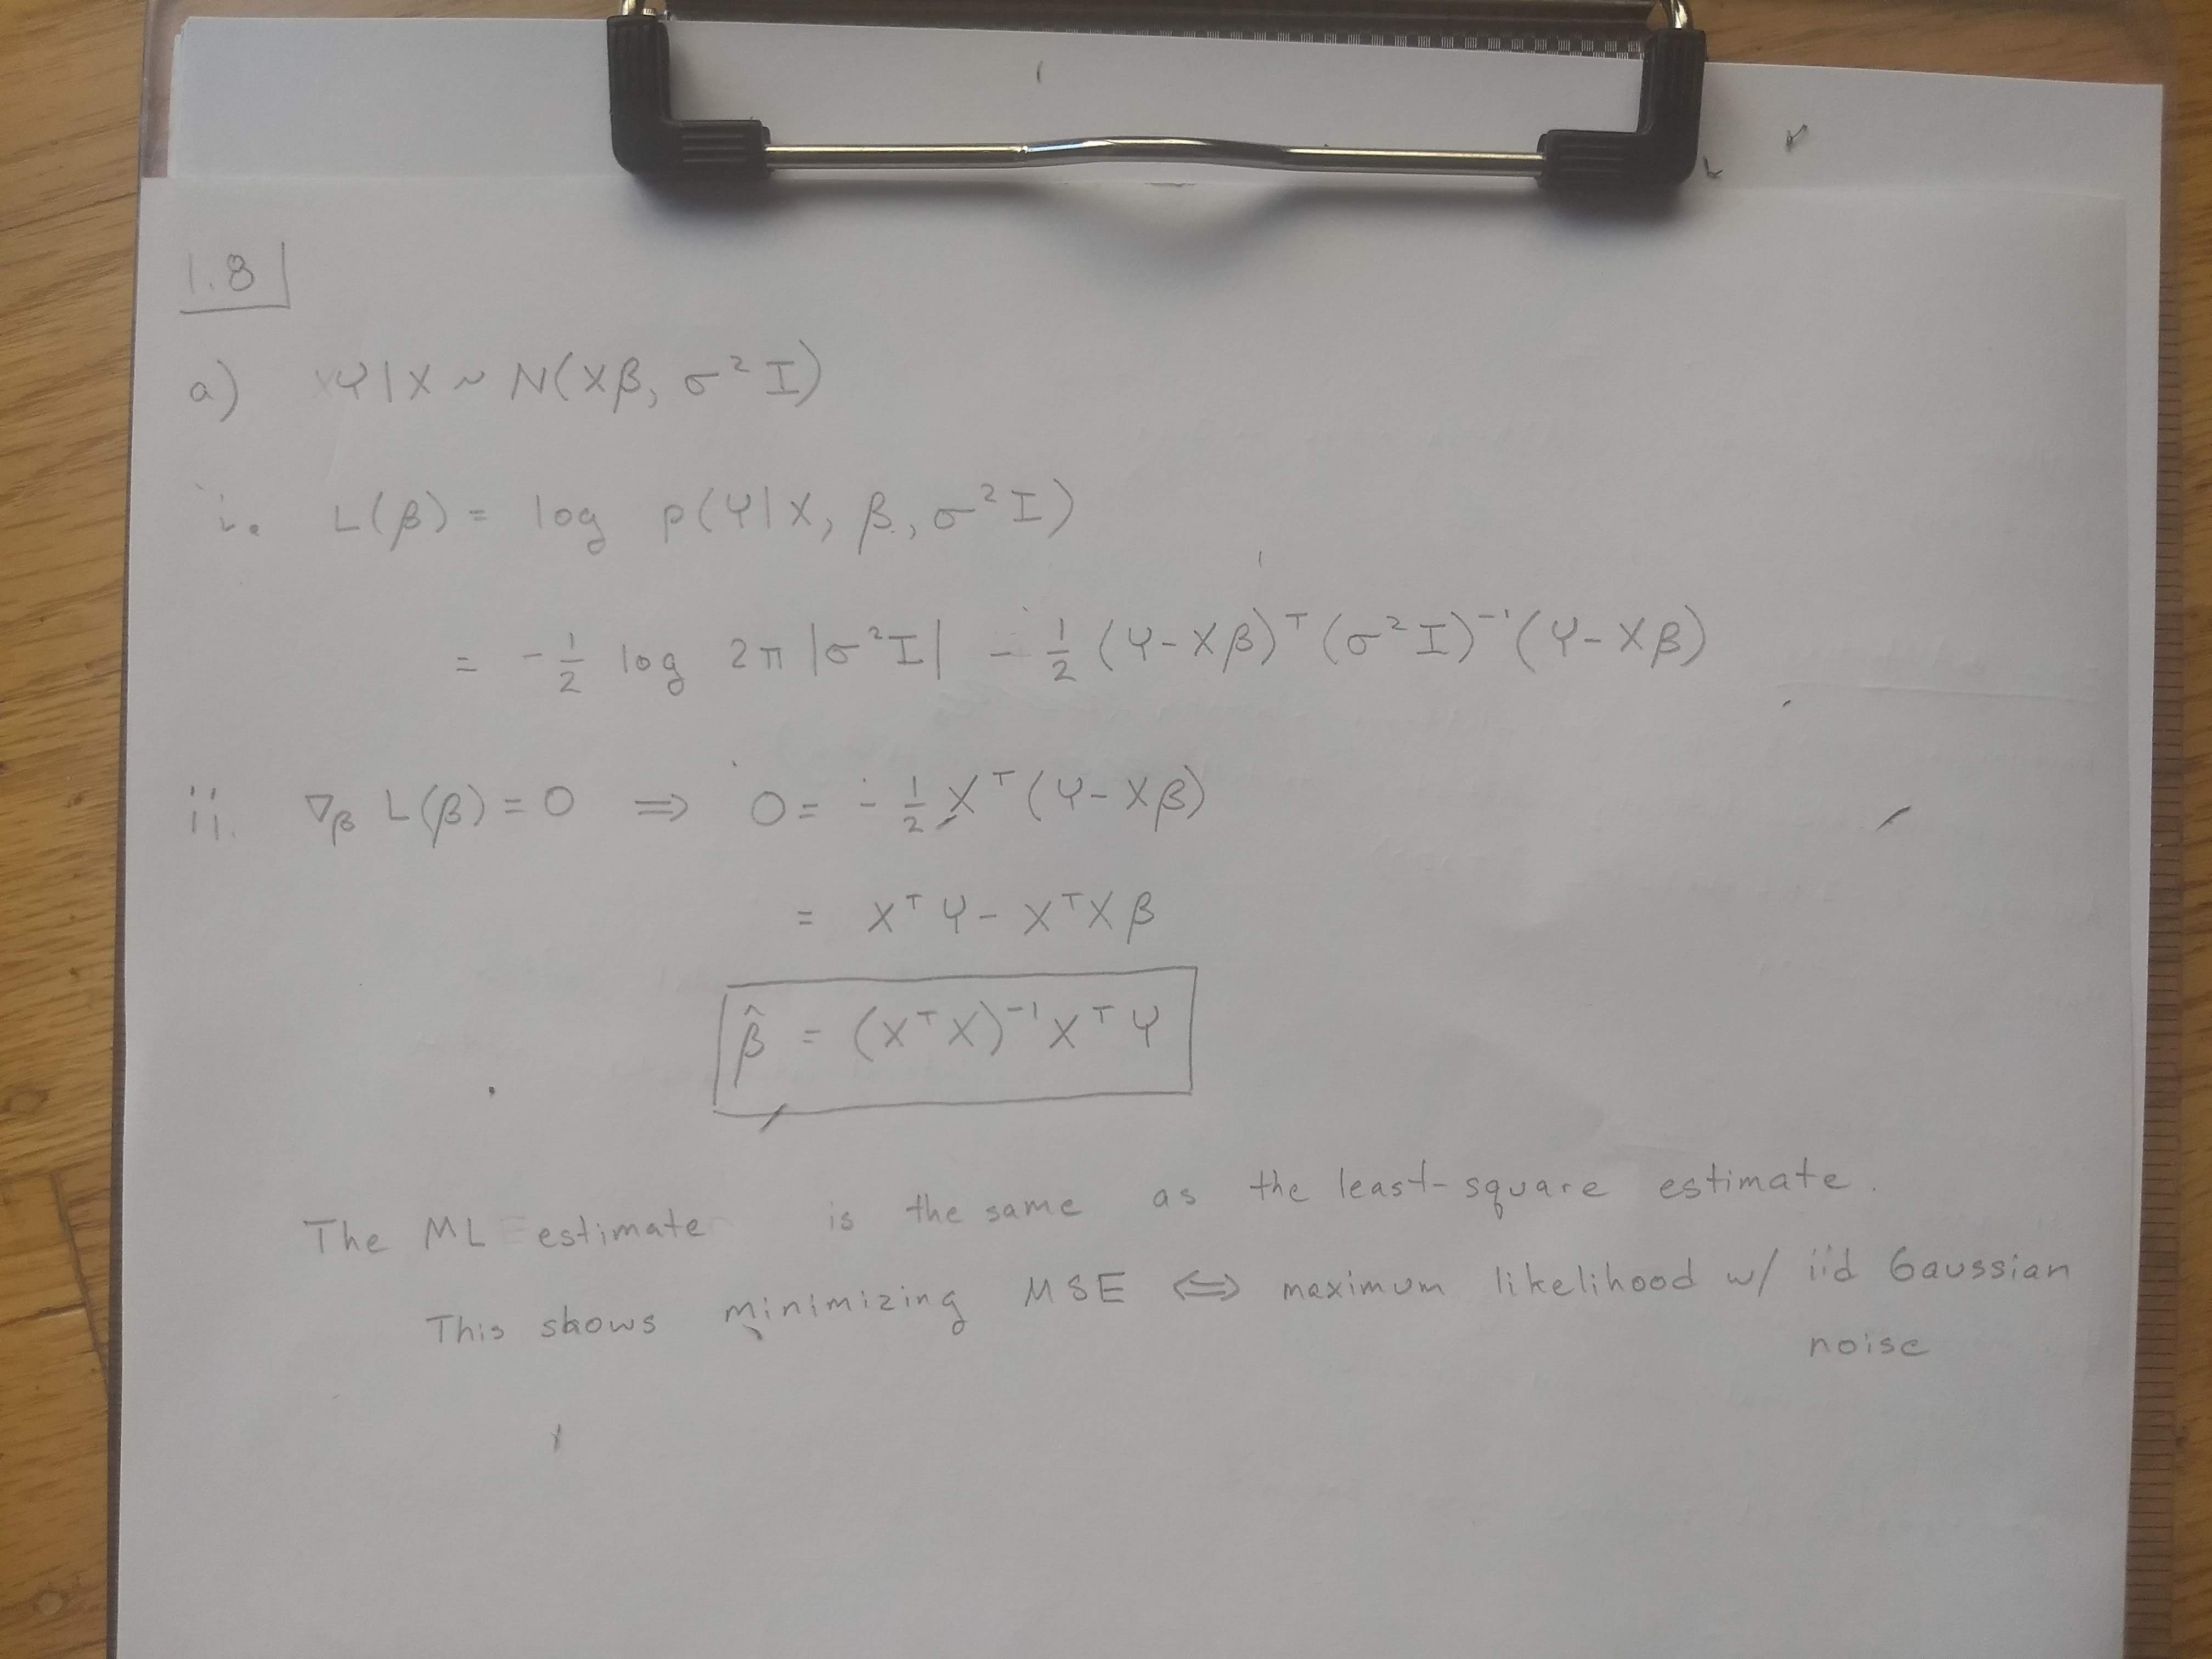 1.8
a) Y|X ~ N(Xβ, σ²I)
i. L(β) = log p(Y|X, β, σ²I)
= -½ log 2π |σ²I| - ½ (Y-Xβ)ᵀ (σ²I)⁻¹ (Y-Xβ)
ii. ∇β L(β) = 0 ⇒ 0 = -½ Xᵀ(Y-Xβ)
= XᵀY - XᵀXβ
β̂ = (XᵀX)⁻¹XᵀY
The ML estimate is the same as the least-square estimate.
This shows minimizing MSE ⇔ maximum likelihood w/ iid Gaussian
noise